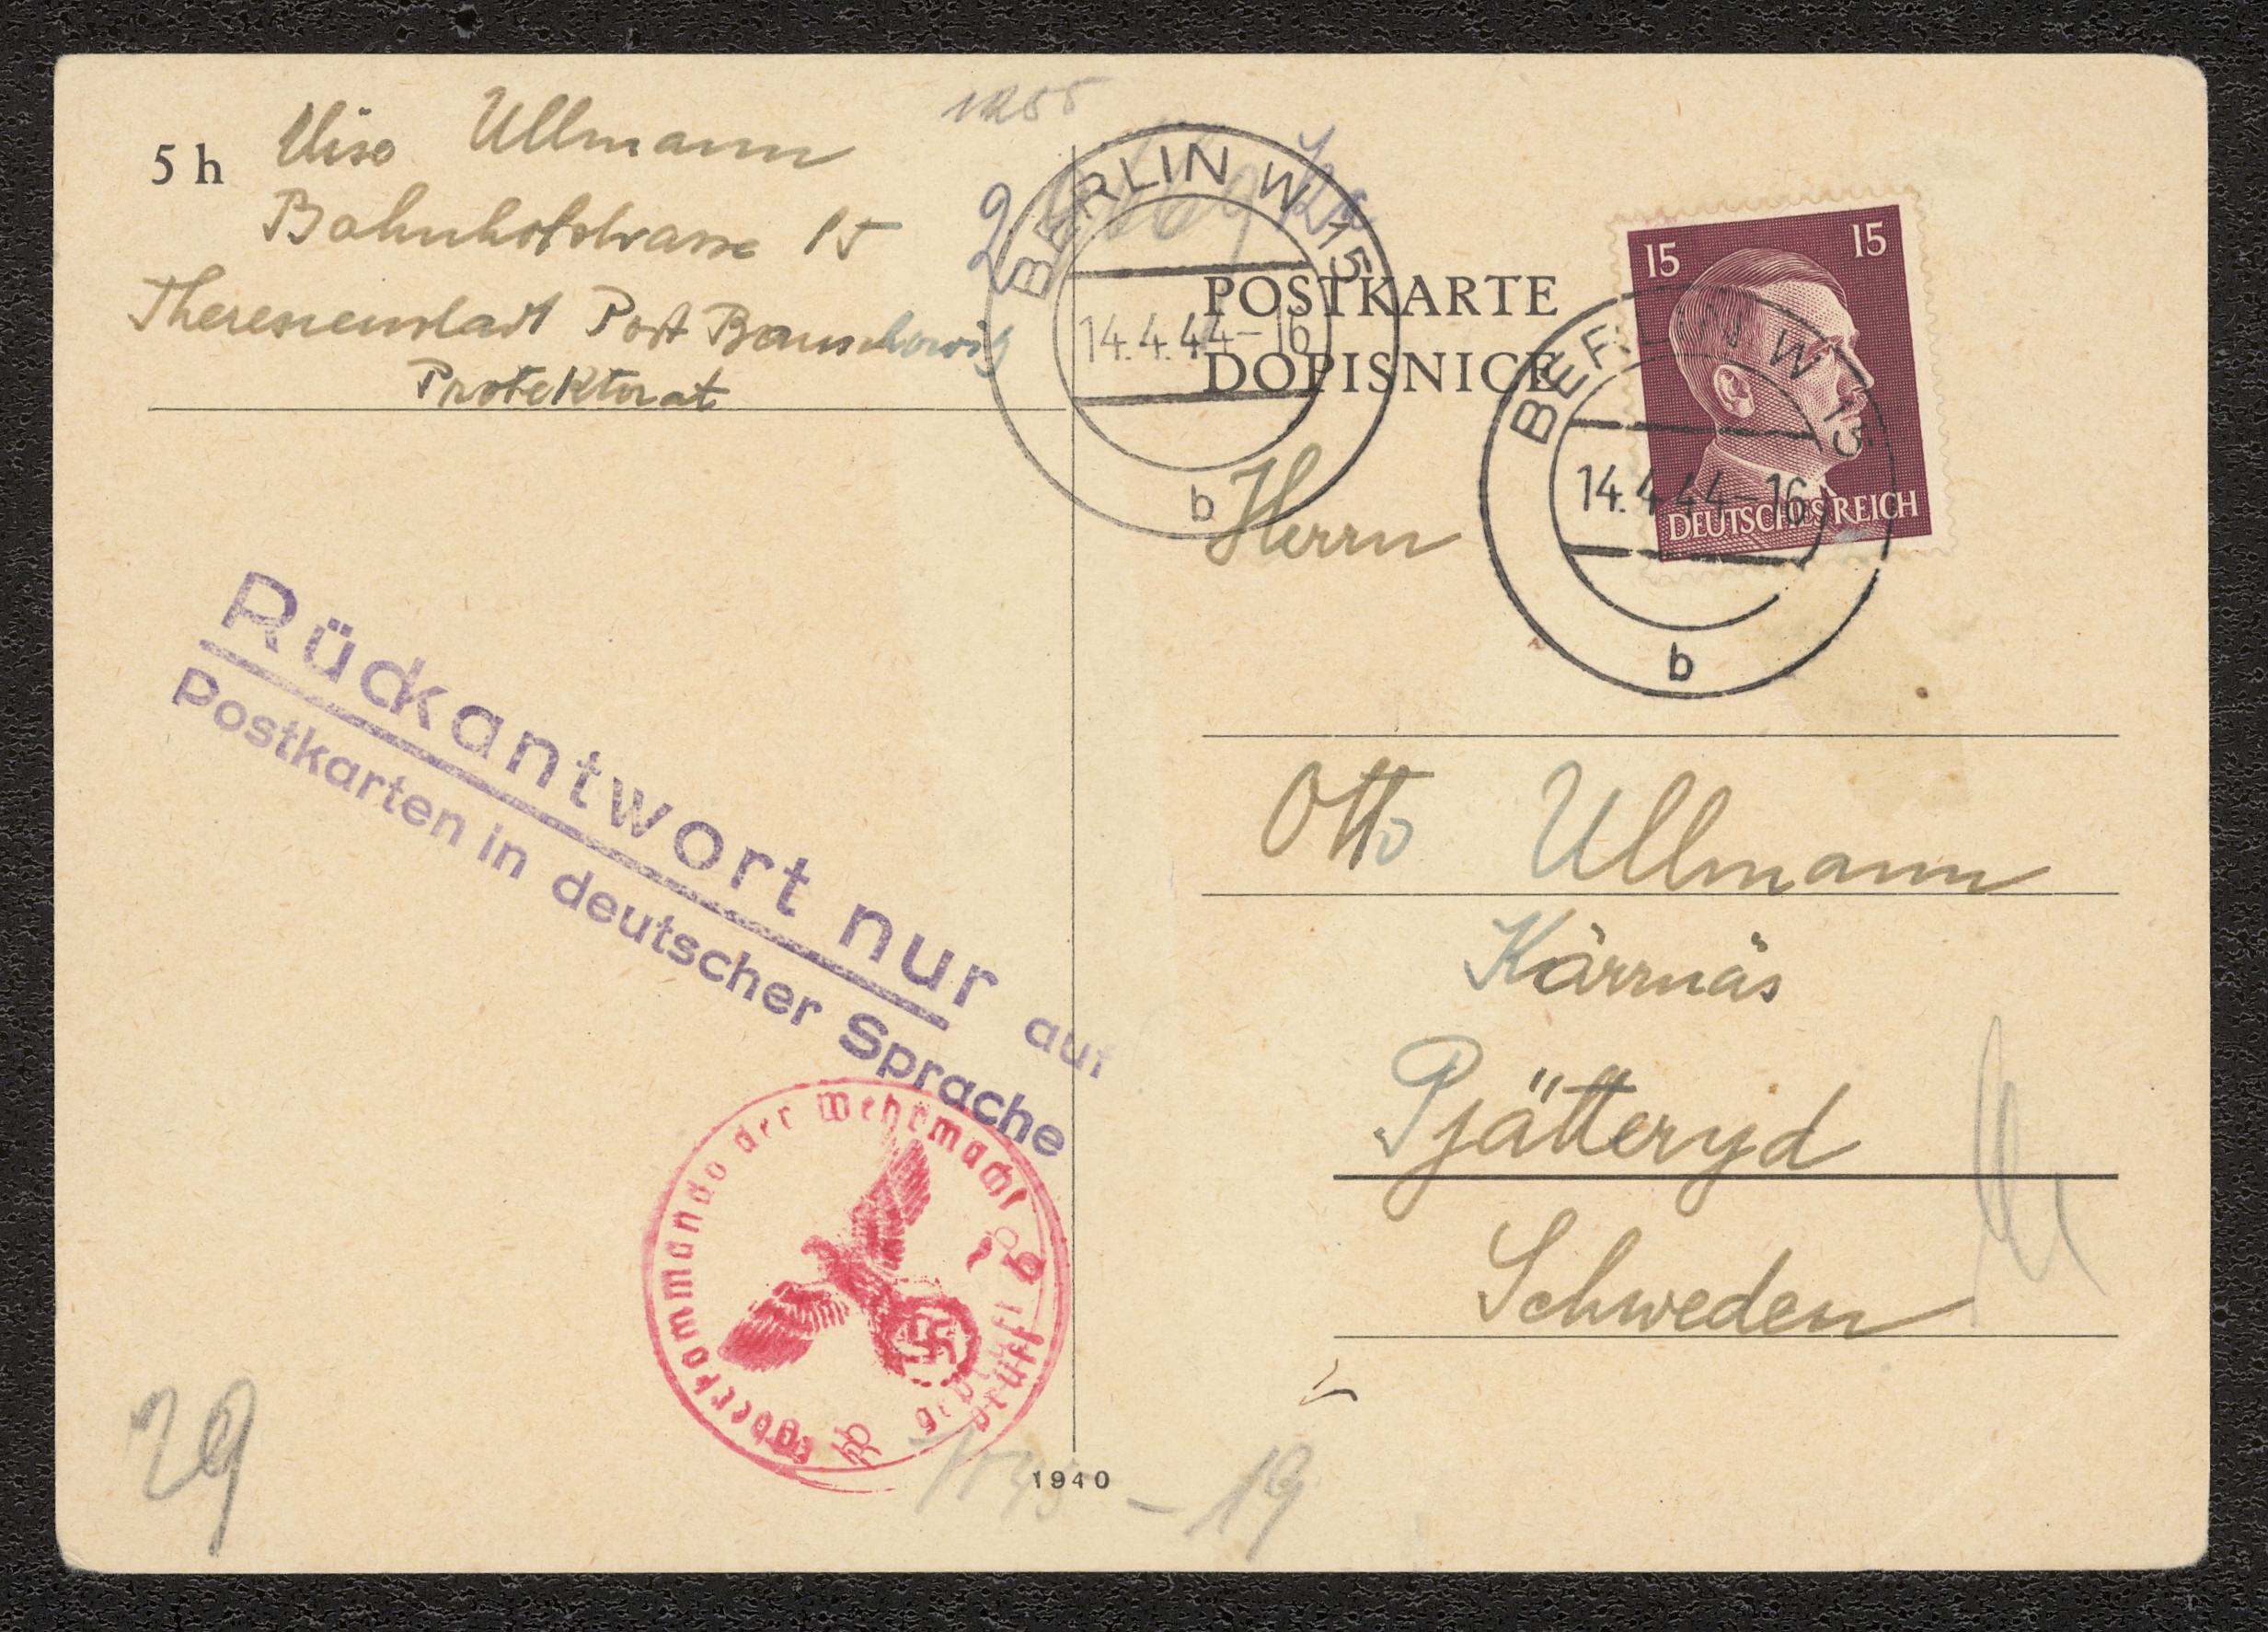 5 h
Ullmann
Bahnhofstrasse 15
Theresienstadt Post Bauschowitz
Protektorat
BERLIN W 15
14.4.44-16
b
POSTKARTE
DOPISNICE
15 15
DEUTSCHES REICH
BERLIN W 15
14.4.44-16
b
Herrn
Otto Ullmann
Kärrnäs
Pjätteryd
Schweden
Rückantwort nur auf
Postkarten in deutscher Sprache
Oberkommando der Wehrmacht
b
29
1940
- 19